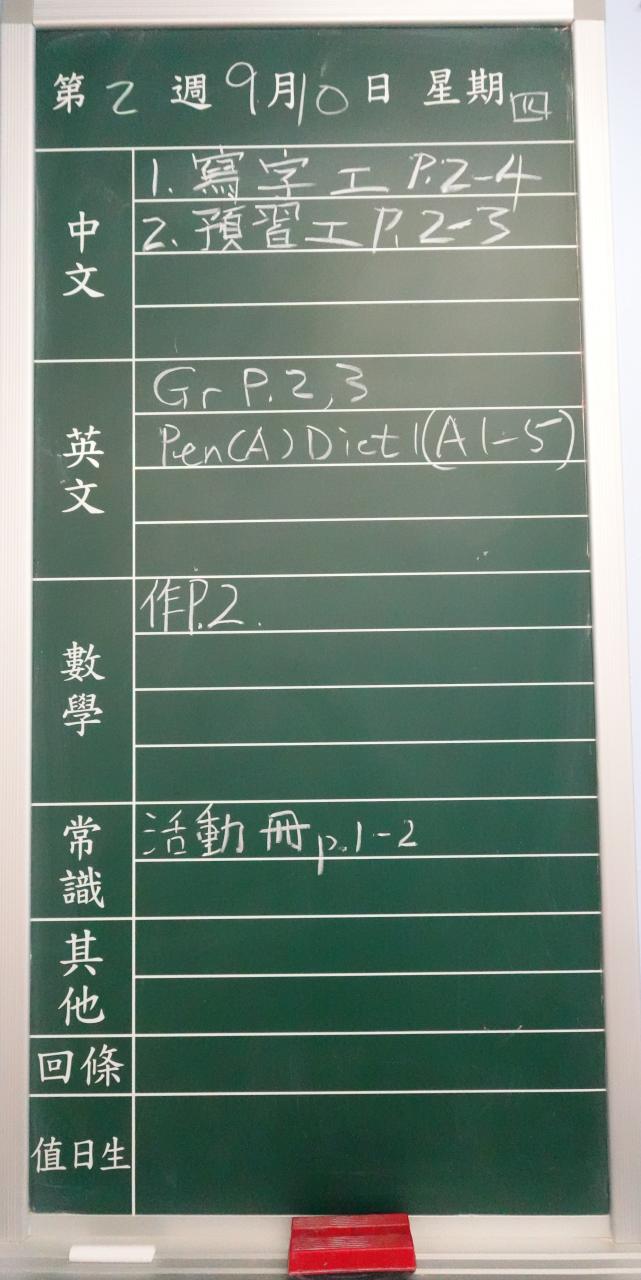 第 2 週 9月10日 星期四
中文
1. 寫字工 P.2-4
2. 預習工 P.2-3
英文
Gr P.2,3
Pen(A) Dict 1(A1-5)
數學
作P.2.
常識
活動冊p.1-2
其他
回條
值日生